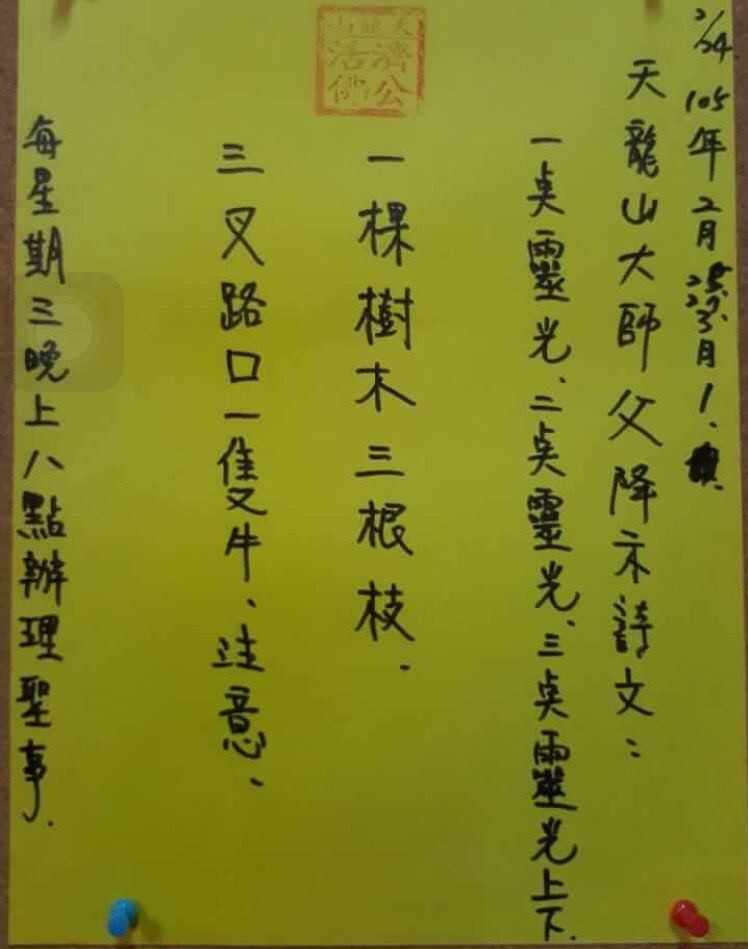 2/24 105年2月25.27.3月1.
天龍山大師父降示詩文：
一点靈光、二点靈光、三点靈光上下.
一棵樹木三根枝.
三叉路口一隻牛、注意、
每星期三晚上八點辦理聖事.
天龍山
濟公
活佛